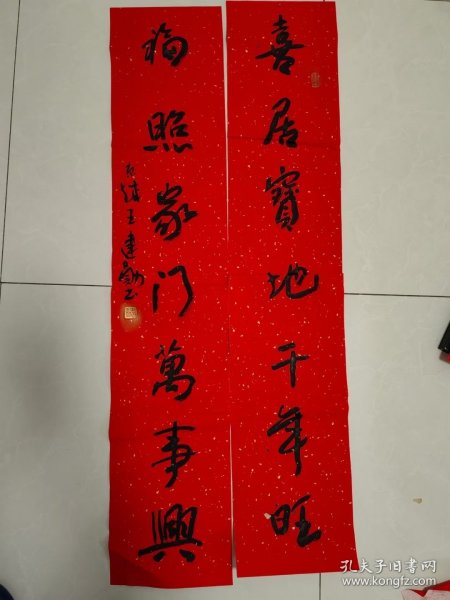 喜居寶地千年旺
福照家门萬事興
孔夫子旧书网
www.kongfz.com